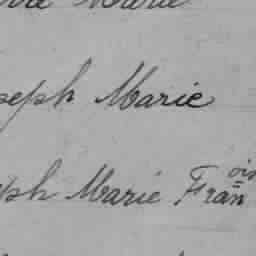 Marie
seph Marie
ph Marie Fran ois